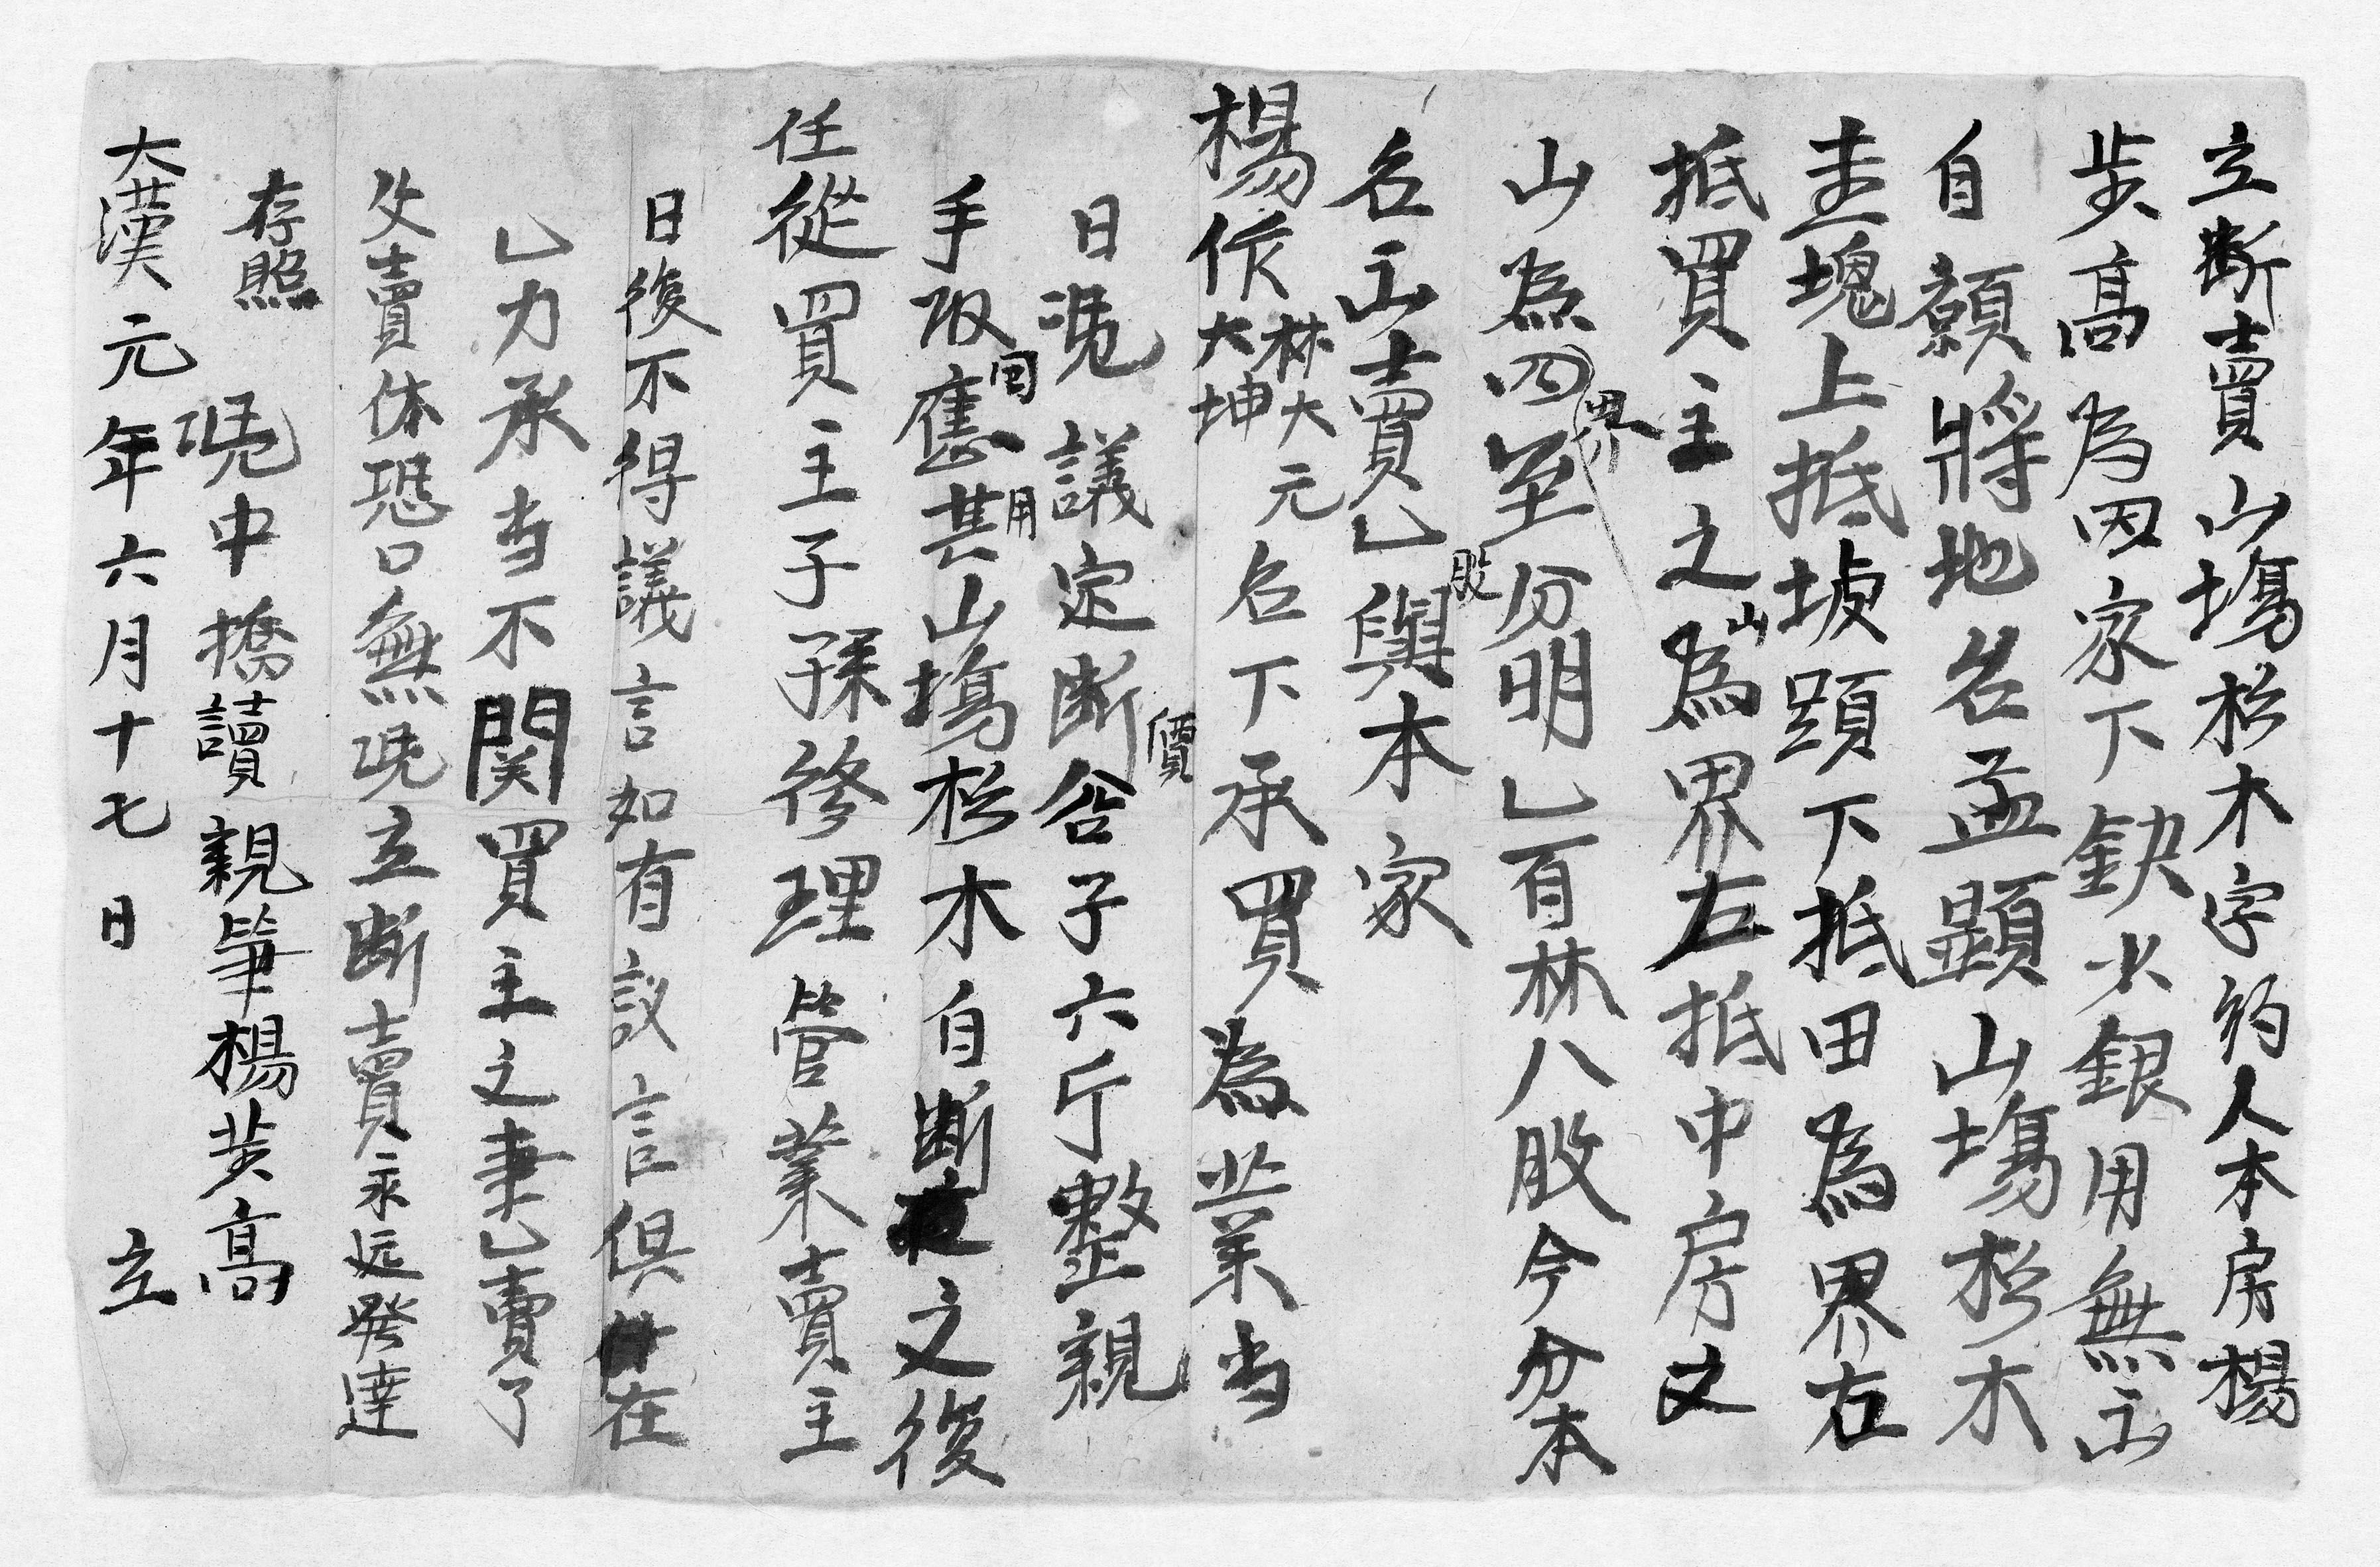 立断賣山塲杉木字約人本房楊
步髙為因家下缺少銀用無出
自願將地名孟顕山塲杉木
壹塊上抵坡頭下抵田為界右
抵買主之山為界左抵中房之
山為界四至分明乚百林八股今分本
名出賣乚股與本家
楊作林大元大坤名下承買為業当
日凴議定断價谷子六斤整親
手収回應用其山塲杉木自断之後
任從買主子孫修理管業賣主
日後不得議言如有議言俱在
乚力承当不関買主之事乚賣了
父賣休恐口無凴立断賣永远發達
存照 凴中擕讀親筆楊步髙
大漢元年六月十七日 立